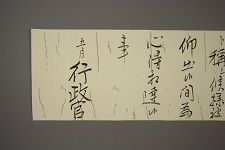 稱候様被
仰出候間為
心得相達候
事
五月 行政官